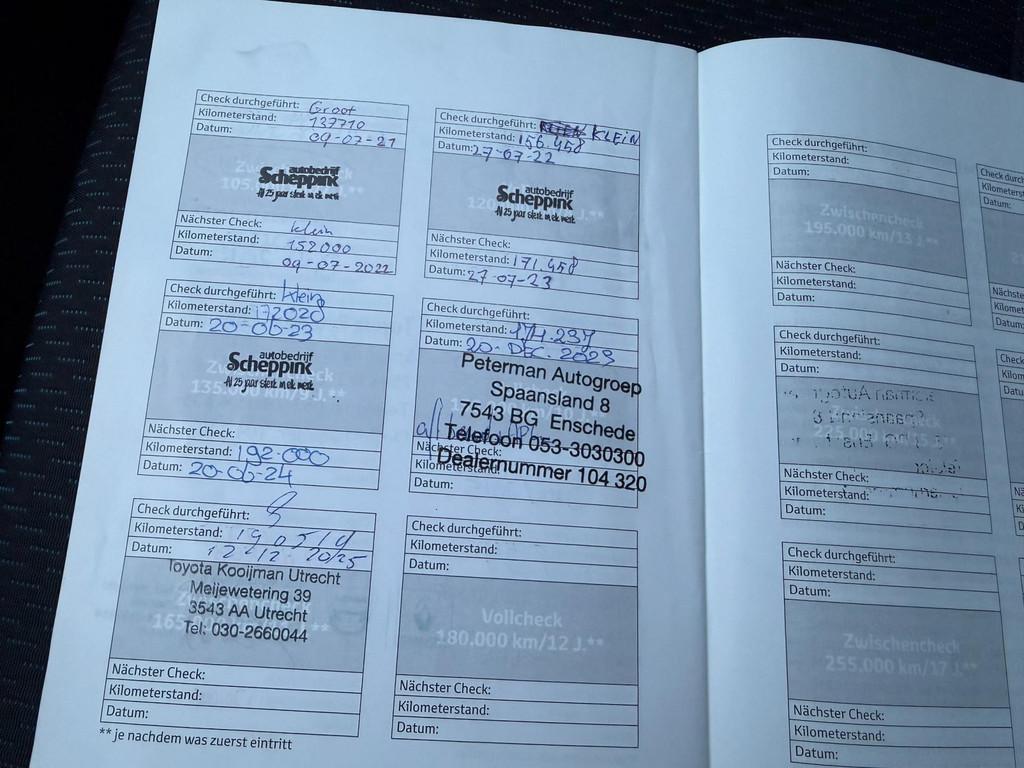 Check durchgeführt: Groot
Kilometerstand: 137710
Datum: 09-07-21
105.
autobedrijf
Scheppink
Al 25 jaar sterk in elk merk
Nächster Check: klein
Kilometerstand: 152000
Datum: 09-07-2022
Check durchgeführt: KLEIN
Kilometerstand: 156.458
Datum: 27-07-22
120
autobedrijf
Scheppink
Al 25 jaar sterk in elk merk
Nächster Check:
Kilometerstand: 171.458
Datum: 27-07-23
Check durchgeführt: klein
Kilometerstand: 172020
Datum: 20-06-23
135.000 km/9 J.**
autobedrijf
Scheppink
Al 25 jaar sterk in elk merk
Nächster Check:
Kilometerstand: 192-000
Datum: 20-06-24
Check durchgeführt:
Kilometerstand: 174.237
Datum: 20-DEC. 2023
Peterman Autogroep
Spaansland 8
7543 BG Enschede
Telefoon 053-3030300
Dealernummer 104 320
Nächster Check:
Kilometerstand:
Datum:
Check durchgeführt:
Kilometerstand:
Datum: 12 12 2025
Toyota Kooijman Utrecht
Meijewetering 39
3543 AA Utrecht
Tel: 030-2660044
Nächster Check:
Kilometerstand:
Datum:
Check durchgeführt:
Kilometerstand:
Datum:
Vollcheck
180.000 km/12 J.**
Nächster Check:
Kilometerstand:
Datum:
** je nachdem was zuerst eintritt
Check durchgeführt:
Kilometerstand:
Datum:
Zwischencheck
195.000 km/13 J.**
Nächster Check:
Kilometerstand:
Datum:
Check durchgeführt:
Kilometerstand:
Datum:
Nächster Check:
Kilometerstand:
Datum:
Check durchgeführt:
Kilometerstand:
Datum:
Zwischencheck
255.000 km/17 J.**
Nächster Check:
Kilometerstand:
Datum: